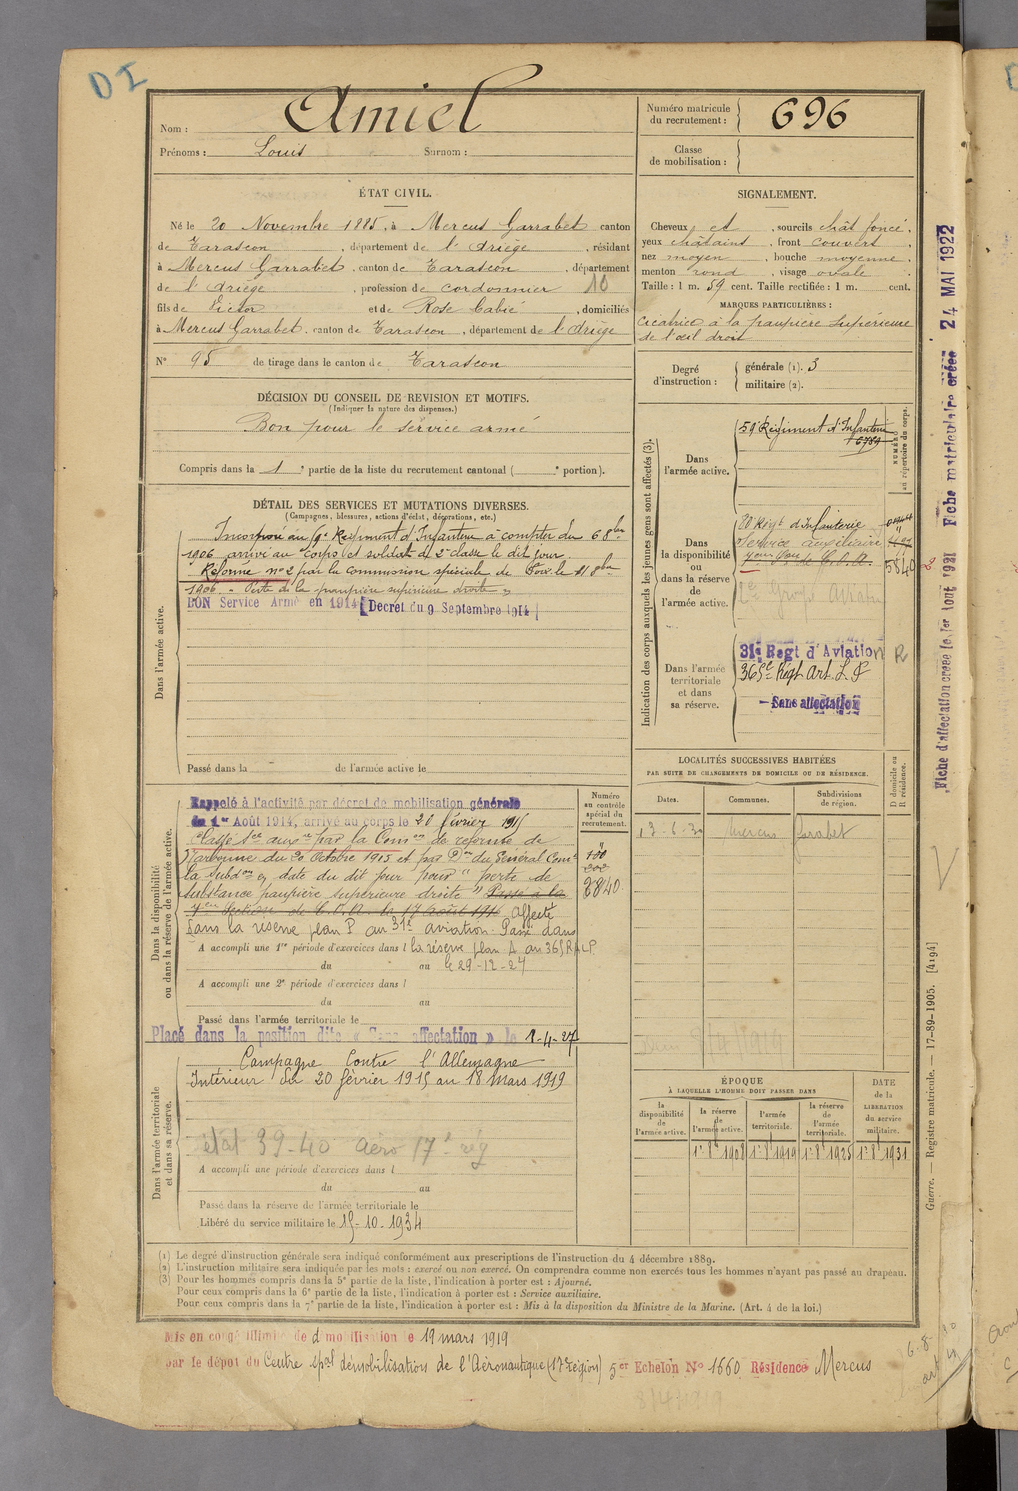 D I
Nom : Amiel
Prénoms : Louis Surnom :
Numéro matricule du recrutement : 696
Classe de mobilisation :
ÉTAT CIVIL.
Né le 20 Novembre 1885, à Mercus Garrabet canton
de Tarascon, département de l'Ariège, résidant
à Mercus Garrabet, canton de Tarascon, département
de l'Ariège, profession de cordonnier 10
fils de Victor et de Rose Cabié, domiciliés
à Mercus Garrabet, canton de Tarascon, département de l'Ariège
N° 95 de tirage dans le canton de Tarascon
SIGNALEMENT.
Cheveux et, sourcils chât foncé,
yeux châtains, front couvert,
nez moyen, bouche moyenne,
menton rond, visage ovale.
Taille : 1 m. 59 cent. Taille rectifiée : 1 m. cent.
MARQUES PARTICULIÈRES :
Cicatrice à la paupière supérieure
de l'œil droit
Degré d'instruction : générale (1). 3
militaire (2).
DÉCISION DU CONSEIL DE REVISION ET MOTIFS.
(Indiquer la nature des dispenses.)
Bon pour le service armé
Compris dans la 1e partie de la liste du recrutement cantonal ( e portion).
DÉTAIL DES SERVICES ET MUTATIONS DIVERSES.
(Campagnes, blessures, actions d'éclat, décorations, etc.)
Dans l'armée active.
Incorporé au 59e Régiment d'Infanterie à compter du 6 8bre
1906 arrivé au corps et soldat de 2e classe le dit jour.
Réformé n°2 par la commission spéciale de Foix le 11 8bre
1906. - Perte de la paupière supérieure droite
BON Service Armé en 1914 [Décret du 9 Septembre 1914]
Passé dans la de l'armée active le
Indication des corps auxquels les jeunes gens sont affectés (3).
NUMÉRO au répertoire du corps.
Dans l'armée active.
59e Régiment d'Infanterie
6789
Dans la disponibilité ou dans la réserve de l'armée active.
80 Régt d'Infanterie
Service auxiliaire
5840
2e Groupe Aviatn
Dans l'armée territoriale et dans sa réserve.
31e Regt d'Aviation R
365e Régt Art. L. P.
- Sans affectation
Fiche d'affectation créée le 1er Août 1921 Fiche matriculaire créée 24 MAI 1922
LOCALITÉS SUCCESSIVES HABITÉES
PAR SUITE DE CHANGEMENTS DE DOMICILE OU DE RÉSIDENCE.
Dates. Communes. Subdivisions de région. D domicile ou R résidence.
13-6-30 Mercus Garabet
Dans la disponibilité ou dans la réserve de l'armée active.
Numéro au contrôle spécial du recrutement.
Rappelé à l'activité par décret de mobilisation générale
du 1er Août 1914, arrivé au corps le 20 février 1915
Classé Sce auxre par la Comon de réforme de
Narbonne du 20 Octobre 1915 et par Don du Général Comt
la Subdon en date du dit jour pour "perte de
substance paupière supérieure droite" Passé à la
7eme Section de C.O.A. le 17 Août 1916 affecté
dans la réserve plan P au 31e aviation. Passé dans
2840
A accompli une 1re période d'exercices dans l la réserve plan A au 365 RALP
du au le 29-12-27
A accompli une 2e période d'exercices dans l
du au
Passé dans l'armée territoriale le
Placé dans la position dite « Sans affectation » le 1-4-27
Dans l'armée territoriale et dans sa réserve.
Campagne Contre l'Allemagne
Intérieur du 20 février 1915 au 18 mars 1919
état 39-40 aéro 17e rég
A accompli une période d'exercices dans l
du au
Passé dans la réserve de l'armée territoriale le
Libéré du service militaire le 15-10-1934
ÉPOQUE
À LAQUELLE L'HOMME DOIT PASSER DANS
DATE de la LIBÉRATION du service militaire.
la disponibilité de l'armée active. la réserve de l'armée active. l'armée territoriale. la réserve de l'armée territoriale.
1er 8bre 1908 1er 8bre 1919 1er 8bre 1925 1er 8bre 1931
Guerre. — Registre matricule. — 17-89-1905. [4194]
(1) Le degré d'instruction générale sera indiqué conformément aux prescriptions de l'instruction du 4 décembre 1889.
(2) L'instruction militaire sera indiquée par les mots : exercé ou non exercé. On comprendra comme non exercés tous les hommes n'ayant pas passé au drapeau.
(3) Pour les hommes compris dans la 5e partie de la liste, l'indication à porter est : Ajourné.
Pour ceux compris dans la 6e partie de la liste, l'indication à porter est : Service auxiliaire.
Pour ceux compris dans la 7e partie de la liste, l'indication à porter est : Mis à la disposition du Ministre de la Marine. (Art. 4 de la loi.)
Mis en congé illimité de démobilisation le 19 mars 1919
par le dépôt du Centre spal démobilisation de l'Aéronautique (17e région) 5er Echelon N° 1660 Résidence Mercus